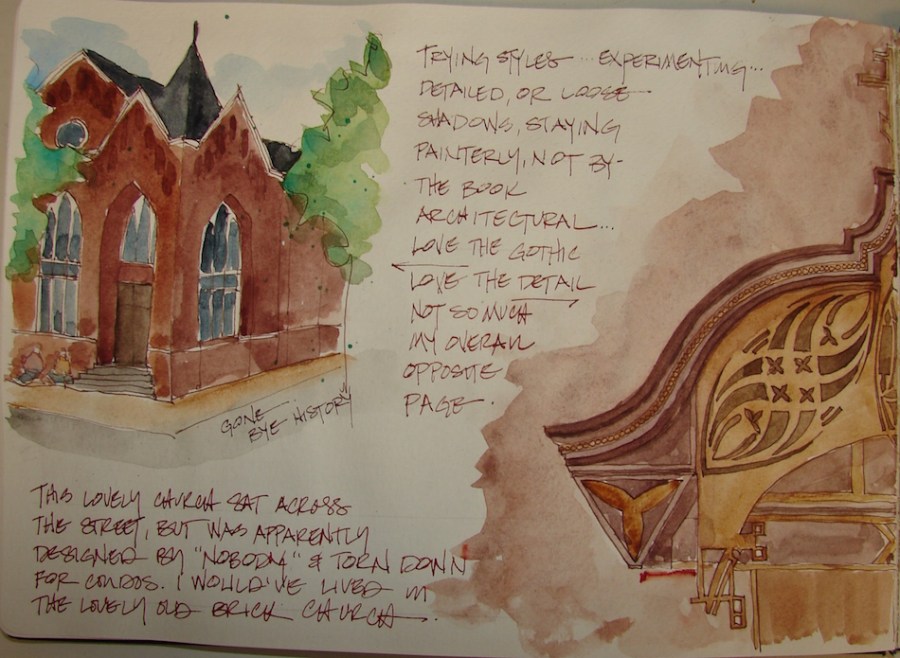 TRYING STYLES ... EXPERIMENTING...
DETAILED, OR LOOSE
SHADOWS, STAYING
PAINTERLY, NOT BY-
THE BOOK
ARCHITECTURAL...
LOVE THE GOTHIC
LOVE THE DETAIL
NOT SO MUCH
MY OVERALL
OPPOSITE
PAGE.
GONE
BYE HISTORY
THIS LOVELY CHURCH SAT ACROSS
THE STREET, BUT WAS APPARENTLY
DESIGNED BY "NOBODY" & TORN DOWN
FOR CONDOS. I WOULD'VE LIVED IN
THE LOVELY OLD BRICK CHURCH.